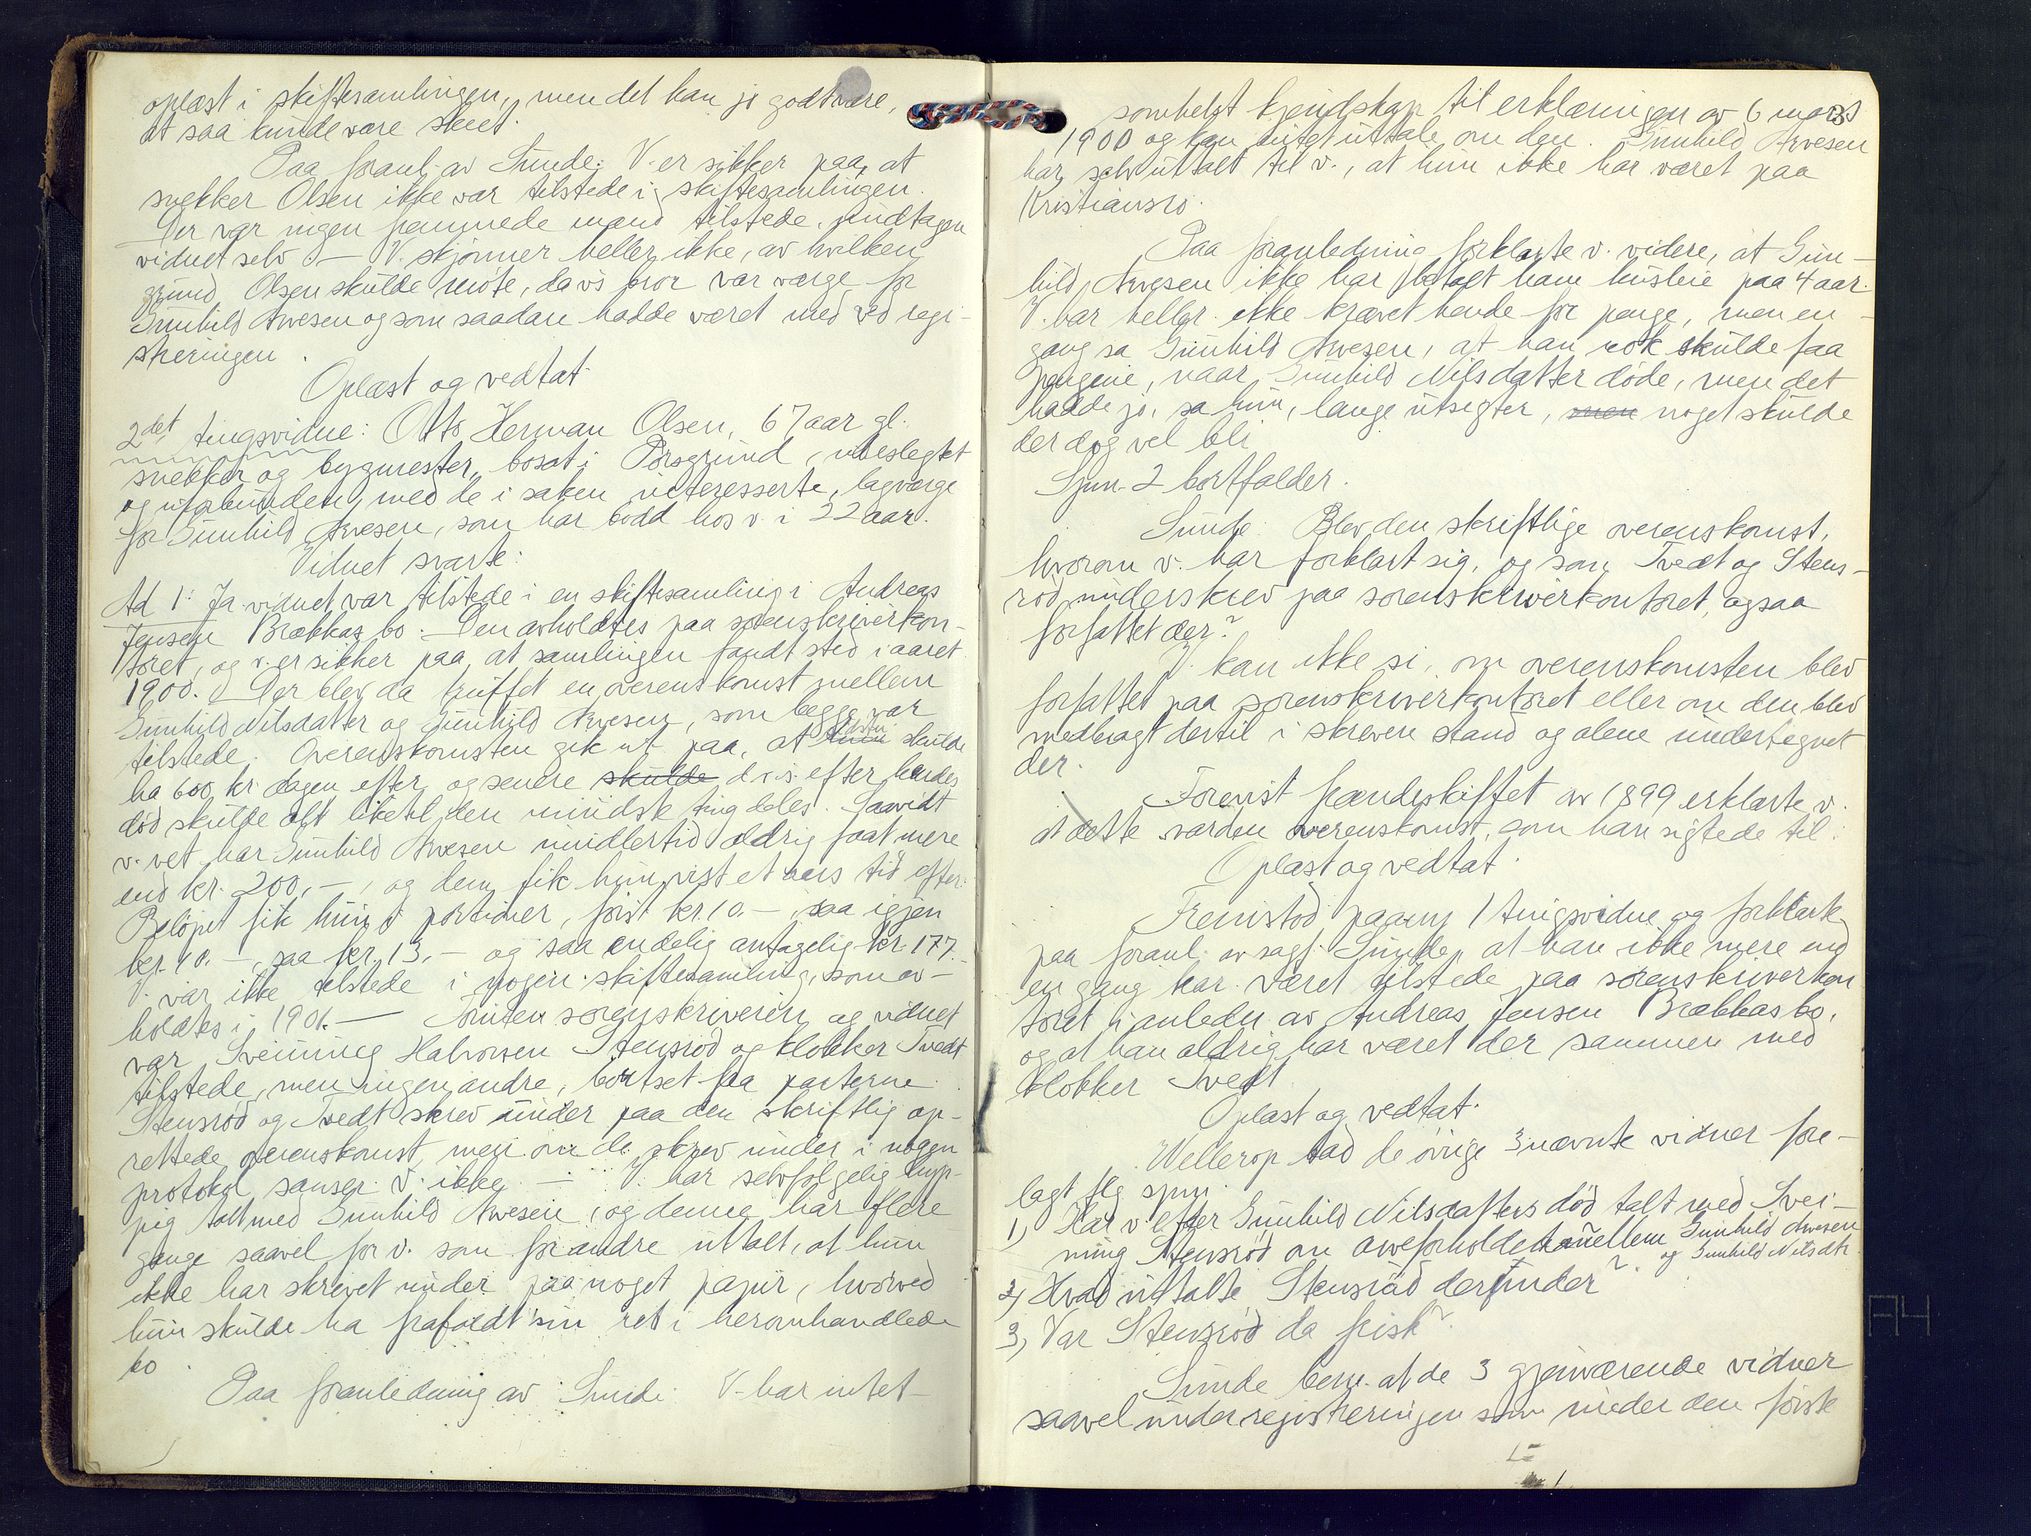 oplæst i skiftesamlingen, men det kan jo godt være,
at saa kunde være skeet.
Paa foranl. av Sunde: V. er sikker paa, at
snekker Olsen ikke var tilstede i skiftesamlingen.
Der var ingen fremmede mænd tilstede, undtagen
vidnet selv — V. skjønner heller ikke, av hvilken
grund Olsen skulde møte, da v's bror var værge for
Gunhild Arvesen og som saadan hadde været med ved regi-
streringen.
Oplæst og vedtat.
2det tingsvidne: Otto Herman Olsen, 67 aar gl.
snekker og bygmester, bosat i Porsgrund, ubeslegtet
og uforbunden med de i saken interesserte, lagværge
for Gunhild Arvesen, som har bodd hos v. i 22 aar.
Vidnet svarte:
Ad 1: Ja vidnet var tilstede i en skiftesamling i Andreas
Jensen Brækkas bo. Den avholdtes paa sorenskriverkon-
toret, og v. er sikker paa, at samlingen fandt sted i aaret
1900. Der blev da truffet en overenskomst mellem
Gunhild Nilsdatter og Gunhild Arvesen, som begge var
tilstede. Overenskomsten gik ut paa, at skulde
ha 600 kr. dagen efter og senere skulde d.v.s. efter hendes
død skulde alt likt til den mindste ting deles. Saavidt
v. vet har Gunhild Arvesen imidlertid aldrig faat mere
end kr. 200,—, og dem fik hun vist et aars tid efter.
Beløpet fik hun i portioner, først kr. 10.— saa igjen
kr. 10.—, saa kr. 13.— og saa endelig antagelig kr. 177.—
V. var ikke tilstede i nogen skiftesamling, som av-
holdtes i 1901.— Foruten sorenskriveren og vidnet
var Sveinung Halvorsen Stensrød og klokker Tvedt
tilstede, men ingen andre, bortset fra parterne.
Stensrød og Tvedt skrev under paa den skriftlig op-
rettede overenskomst, men om de skrev under i nogen
protokol sanser v. ikke. — V. har selvfølgelig hyp-
pig talt med Gunhild Arvesen, og denne har flere
gange saavel for v. som for andre uttalt, at hun
ikke har skrevet under paa noget papir, hvorved
hun skulde ha frafaldt sin ret i heromhandlede
bo.
Paa foranledning av Sunde: V. har intet-
somhelst kjendskap til erklæringen av 6 marts
1900 og kan intet uttale om den. Gunhild Arvesen
har selv uttalt til v., at hun ikke har været paa
Kristiansrø.
Paa foranledning forklarte v. videre, at Gun-
hild Arvesen ikke har betalt ham husleie paa 4 aar.
V. har heller ikke krævet hende for penge, men en-
gang sa Gunhild Arvesen, at han nok skulde faa
pengene, naar Gunhild Nilsdatter døde, men det
hadde jo, sa hun, lange utsigter, men noget skulde
der dog vel bli.
Spm. 2 bortfalder.
Sunde: Blev den skriftlige overenskomst,
hvorom v. har forklart sig, og som Tvedt og Stens-
rød underskrev paa sorenskriverkontoret, ogsaa
forfattet der?
V. kan ikke si, om overenskomsten blev
forfattet paa sorenskriverkontoret eller om den blev
medbragt dertil i skreven stand og alene undertegnet
der.
Forevist frændeskiftet av 1899 erklærte v.
at dette var den overenskomst, som han sigtede til.
Oplæst og vedtat.
Fremstod paany 1 tingsvidne og forklarte
paa foranl. av sagf. Sunde, at han ikke mere end
en gang har været tilstede paa sorenskriverkon
toret i anledn. av Andreas Jensen Brækkas bo,
og at han aldrig har været der sammen med
klokker Tvedt.
Oplæst og vedtat.
Wellerop bad de øvrige 3 nævnte vidner fore-
lagt flg. spm.
1, Har v. efter Gunhild Nilsdatters død talt med Svei-
ning Stensrød om arveforholdet mellem Gunhild Arvesen
og Gunhild Nilsdtr.
2, Hvad uttalte Stensrød derunder?
3, Var Stensrød da frisk?
Sunde bem. at de 3 gjenværende vidner
saavel under registreringen som under den første